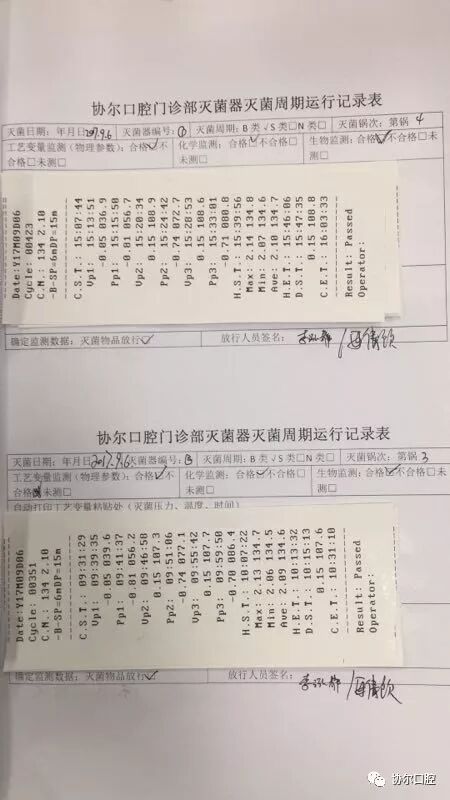 协尔口腔门诊部灭菌器灭菌周期运行记录表
灭菌日期：年月日2017.9.6 灭菌器编号：① 灭菌周期：B 类√S 类□N 类□ 灭菌锅次：第锅 4
工艺变量监测（物理参数）：合格☑不合格□未测□ 化学监测：合格☑不合格□未测□ 生物监测：合格☑不合格□未测□
Date:Y17M09D06
Cycle: 00423
C.M.: 134 2.10
-B-SP=6mDP=15m
C.S.T.: 15:07:44
Vp1: 15:13:51
-0.05 036.9
Pp1: 15:15:50
-0.81 056.7
Vp2: 15:20:34
0.15 108.9
Pp2: 15:24:42
-0.74 072.7
Vp3: 15:28:53
0.15 108.6
Pp3: 15:33:01
-0.71 080.8
H.S.T.: 15:39:56
Max: 2.14 134.8
Min: 2.07 134.6
Ave: 2.10 134.7
H.E.T.: 15:46:06
D.S.T.: 15:47:35
0.15 108.8
C.E.T.: 16:03:33
Result: Passed
Operator:
确定监测数据：灭菌物品放行☑ 放行人员签名：
协尔口腔门诊部灭菌器灭菌周期运行记录表
灭菌日期：年月日2017.9.6 灭菌器编号：③ 灭菌周期：B 类☑S 类□N 类□ 灭菌锅次：第锅 3
工艺变量监测（物理参数）：合格☑不合格□未测□ 化学监测：合格☑不合格□未测□ 生物监测：合格☑不合格□未测□
自动打印工艺变量粘贴处（灭菌压力、温度、时间）
Date:Y17M09D06
Cycle: 00351
C.M.: 134 2.10
-B-SP=6mDP=15m
C.S.T.: 09:31:29
Vp1: 09:39:35
-0.05 039.6
Pp1: 09:41:37
-0.81 056.2
Vp2: 09:46:50
0.15 107.3
Pp2: 09:51:06
-0.74 077.1
Vp3: 09:55:42
0.15 107.7
Pp3: 09:59:50
-0.70 086.4
H.S.T.: 10:07:22
Max: 2.13 134.7
Min: 2.06 134.5
Ave: 2.09 134.6
H.E.T.: 10:13:32
D.S.T.: 10:15:13
0.15 107.6
C.E.T.: 10:31:10
Result: Passed
Operator:
确定监测数据：灭菌物品放行☑ 放行人员签名：
协尔口腔